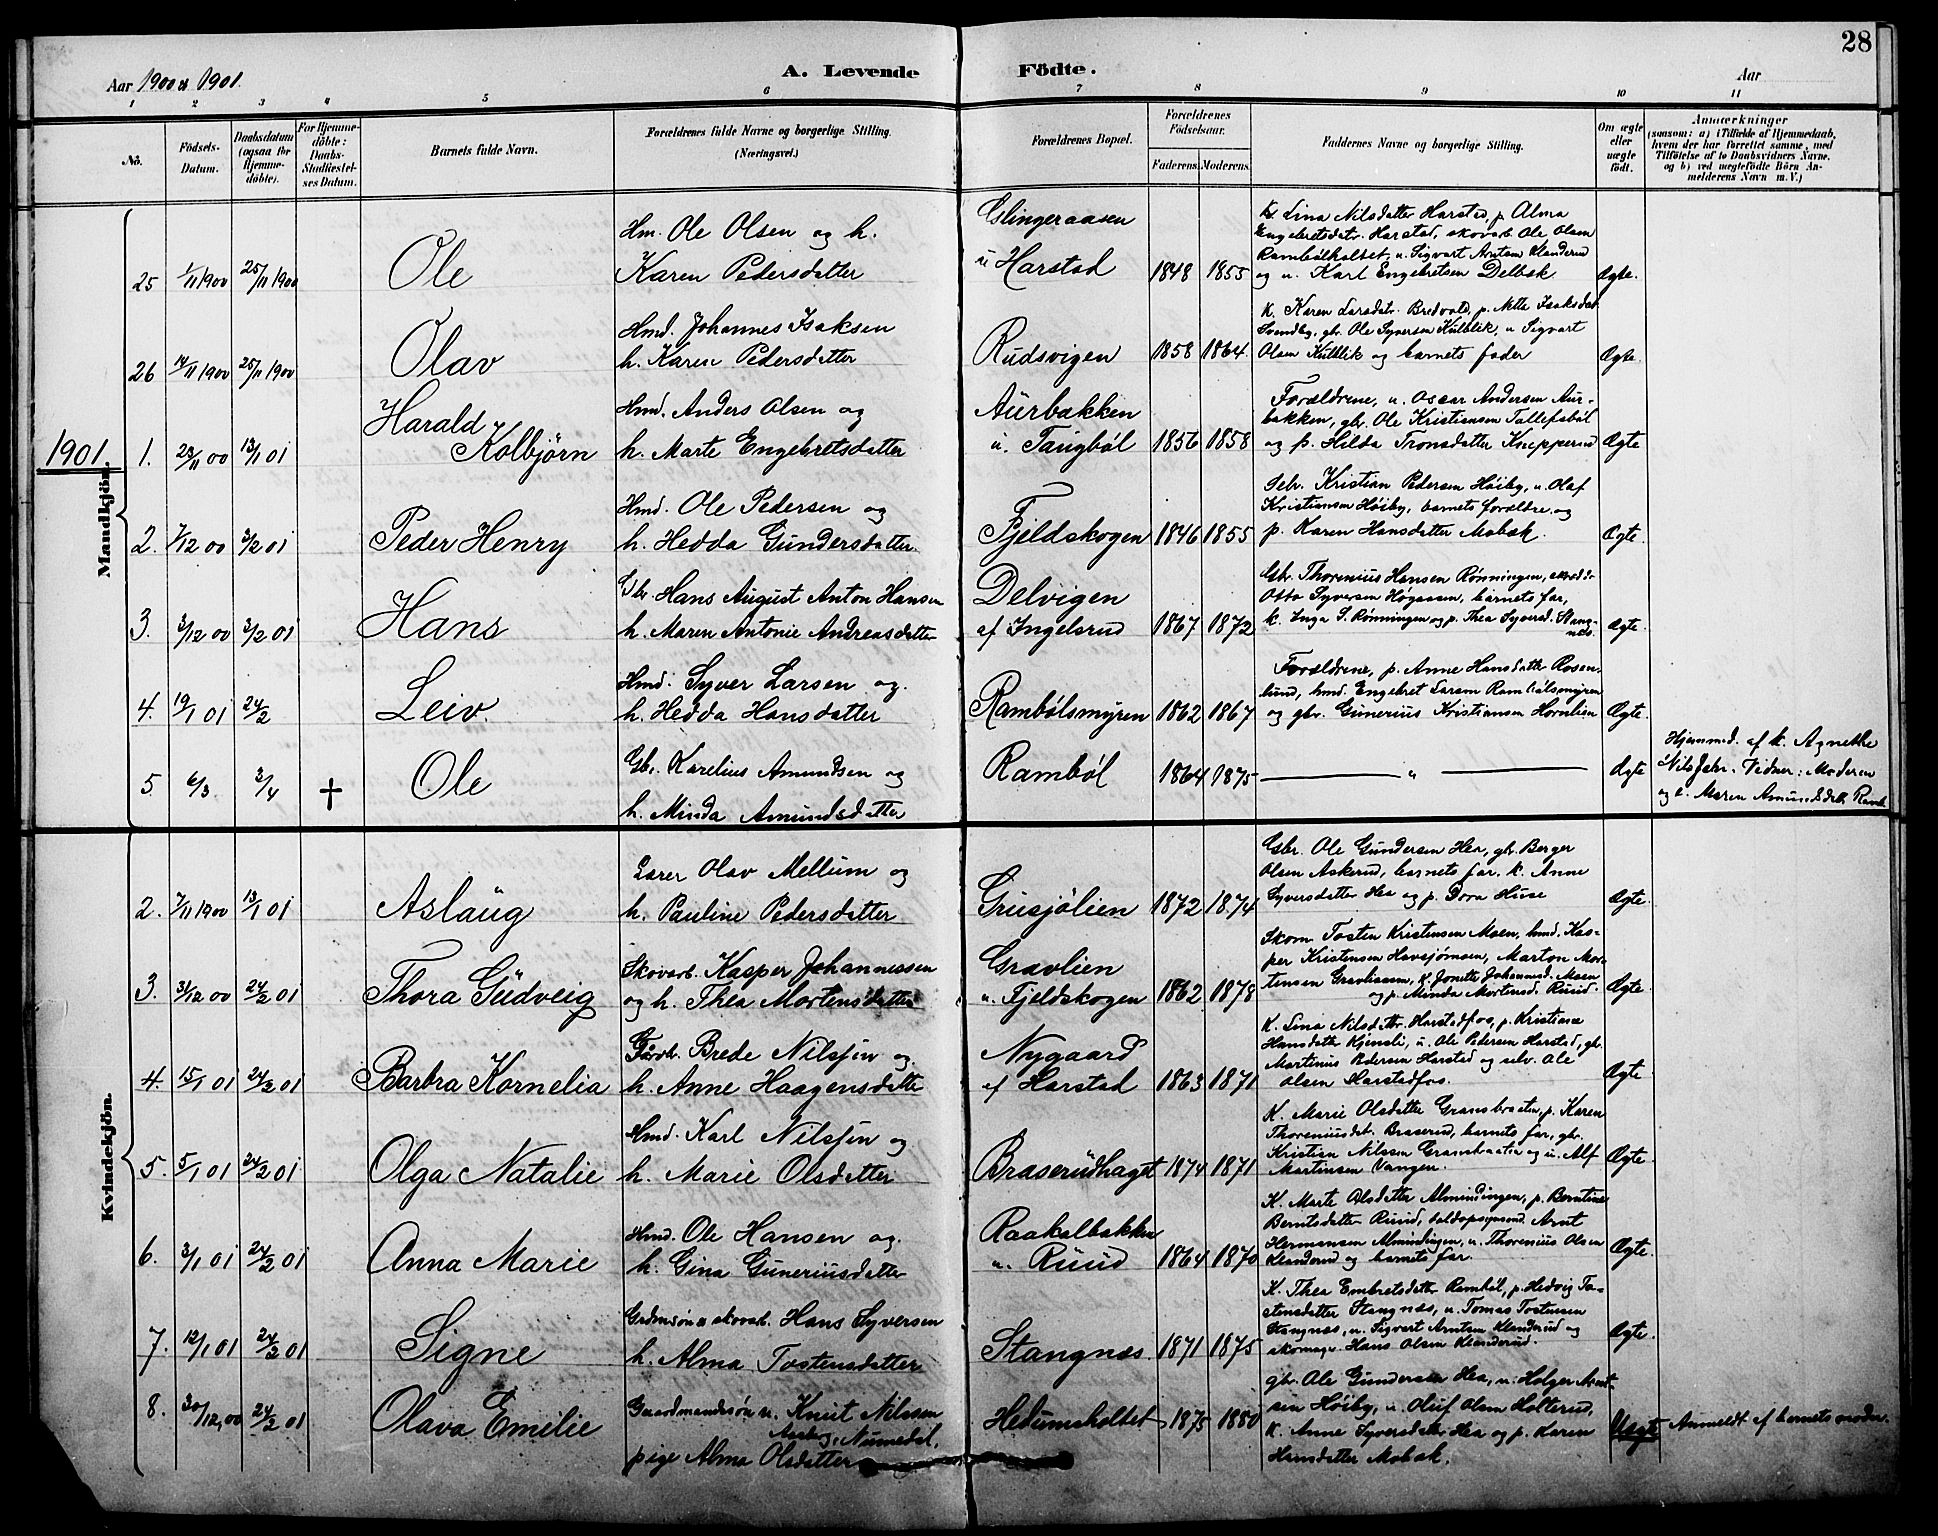 28
Aar 1900 & 1901.
A. Levende Födte.
Aar
1 2 3 4 5 6 7 8 9 10 11
No.
Födsels-Datum.
Daabsdatum (ogsaa for Hjemme-döbte).
For Hjemme-döbte: Daabs-Stadfæstel-ses Datum.
Barnets fulde Navn.
Forældrenes fulde Navne og borgerlige Stilling.
(Næringsvei.)
Forældrenes Bopæl.
Forældrenes Födselsaar.
Faderens. Moderens.
Faddernes Navne og borgerlige Stilling.
Om ægte eller uægte födt.
Anmærkninger
(saasom: a) i Tilfælde af Hjemmedaab,
hvem der har forrettet samme, med
Tilföielse af to Daabsvidners Navne,
og b) ved uægtefödte Börn An-
melderens Navn m. V.)
Mandkjön.
25 1/11 1900 25/11 1900 Ole
Hm. Ole Olsen og h.
Karen Pedersdatter
u Harstad 1848 1855
K Lina Nilsdatter Harstad, p. Alma
Engebretsdatr. Harstad, skovarb Ole Olsen
Rambølholtet, u. Sigvart Arntsen Klanderud
og u. Karl Engebretsen Delbæk Ægte.
26 14/11 1900 25/11 1900 Olav
Hmd. Johannes Isaksen
h. Karen Pedersdatter
Rudsvigen 1858 1864
K. Karen Larsdatr. Bredvold, p. Mette Isaksdat
Svendby, gbr. Ole Syversen Kulblik, u Sigvart
Olsen Kulblik og barnets fader Ægte.
1901
1. 23/11 00 13/1 01 Harald Kolbjörn
Hmd. Anders Olsen og
h. Marte Engebretsdatter
Aurbakken
u. Taugbøl 1856 1858
Forældrene, u. Oscar Andersen Aur-
bakken, gbr. Ole Kristiansen Tallefsbøl
og p. Hilda Tronsdatter Knepperud Ægte
2. 7/12 00 3/2 01 Peder Henry
Hmd. Ole Pedersen og
h. Hedda Gundersdatter.
Fjeldskogen 1846 1855
Gbr. Kristian Pedersen Høiby, u. Olaf
Kristiansen Høiby, barnets forældre og
p. Karen Hansdatter Mobæk. Ægte.
3. 3/12 00 3/2 01 Hans
Gbr Hans August Anton Hansen
h. Maren Antonie Andreasdatter
Delvigen
af Ingelsrud 1867 1872
Gbr. Thorenius Hansen Rønningen, skrædr.
Otto Syversen Høgaasen, barnets far,
k. Inga S. Rønningen og p. Thea Syversd. Stang-
næs. Ægte
4. 19/1 01 24/2 Leiv.
Hmd. Syver Larsen og
h. Hedda Hansdatter
Rambølsmyren 1862 1867
Forældrene, p. Anne Hansdatter Rosen-
lund, hmd. Engebret Larsen Rambølsmyren
og gbr. Gunerius Kristiansen Hornlien Ægte.
5. 6/3 3/4 † Ole
Gb. Karelius Amundsen og
h. Minda Amundsdatter
Rambøl 1864 1875
— " — Ægte
Hjemmed. af k. Agnethe
Nilsdatr. Vidner: Moderen
og e. Maren Amundsdatr. Ramb
Kvindekjön.
2. 7/11 1900 13/1 01 Aslaug
Lærer Olav Mellum og
h. Pauline Pedersdatter
Grusjølien 1872 1874
Gbr. Ole Gundersen Hea, gbr. Berger
Olsen Askerud, barnets far. k. Anne
Syversdatter Hea og p. Dora Huse Ægte.
3. 3/12 00 24/2 01 Thora Gudveig
Skovarb. Kasper Johannessen
og h. Thea Mortensdatter
Gravlien
u. Fjeldskogen 1862 1878
Skom. Tosten Kristensen Moen, hmd. Kas-
per Kristensen Havsjømoen, Marton Mor-
tensen Gravliasen, k. Jonette Johannesd. Moen
og p. Minda Mortensd. Ruud. Ægte.
4. 15/1 01 24/2 01 Barbra Kornelia
Gårdb. Brede Nilssen og
h. Anne Haagensdatter
Nygaard
af Harstad 1863 1871
K. Lina Nilsdatr. Harstadfos, p. Kristiane
Hansdatter Kjensli, u. Ole Pedersen Harstad, gb.
Martinius Pedersen Harstad og selv. Ole
Olsen Harstadfos. Ægte
5. 5/1 01 24/2 01 Olga Natalie
Hmd. Karl Nilssen og
h. Marie Olsdatter
Braserudhaget 1874 1871
K. Marie Olsdatter Gransbraaten, p. Karen
Thoreniusdat. Braserud, barnets far, gbr.
Kristian Nilssen Gransbraaten og u. Alf
Martinsen Vangen. Ægte.
6. 3/1 01 24/2 01 Anna Marie
Hmd. Ole Hansen og
h. Gina Guneriusdatter
Raakalbakken
u. Ruud 1864 1870
K. Marte Olsdatter Almindingen, p. Berntine
Berntsdatter Ruud, baldopsynsmd. Arnt
Hermansen Almindingen, u. Thorenius Olsen
Klanderud og barnets far. Ægte.
7. 12/1 01 24/2 01 Signe
Gdmdsøn & skovarb. Hans Syversen
h. Alma Tostensdatter
Stangnæs. 1871 1875
K. Thea Embretsdatter Rambøl, p. Hedvig To-
stensdatter Stangnæs, u. Tomas Tostensen
Stangnæs, u. Sigvart Arntsen Klanderud og
skomag. Hans Olsen Klanderud. Ægte.
8. 30/12,00 24/2 01 Olava Emilie
Gaardmandssøn u. Knut Nilssen
Aasberg, Numedal.
pige Alma Olsdatter
Hedumsholtet 1875 1880
gbr. Ole Gundersen Hea, u. Holger Arnt-
sen Høiby, u. Oluf Olsen Holterud,
K. Anne Syversdatter Hea og p. Karen
Hansdatter Mobæk. Uægte
Anmeldt af barnets moder.